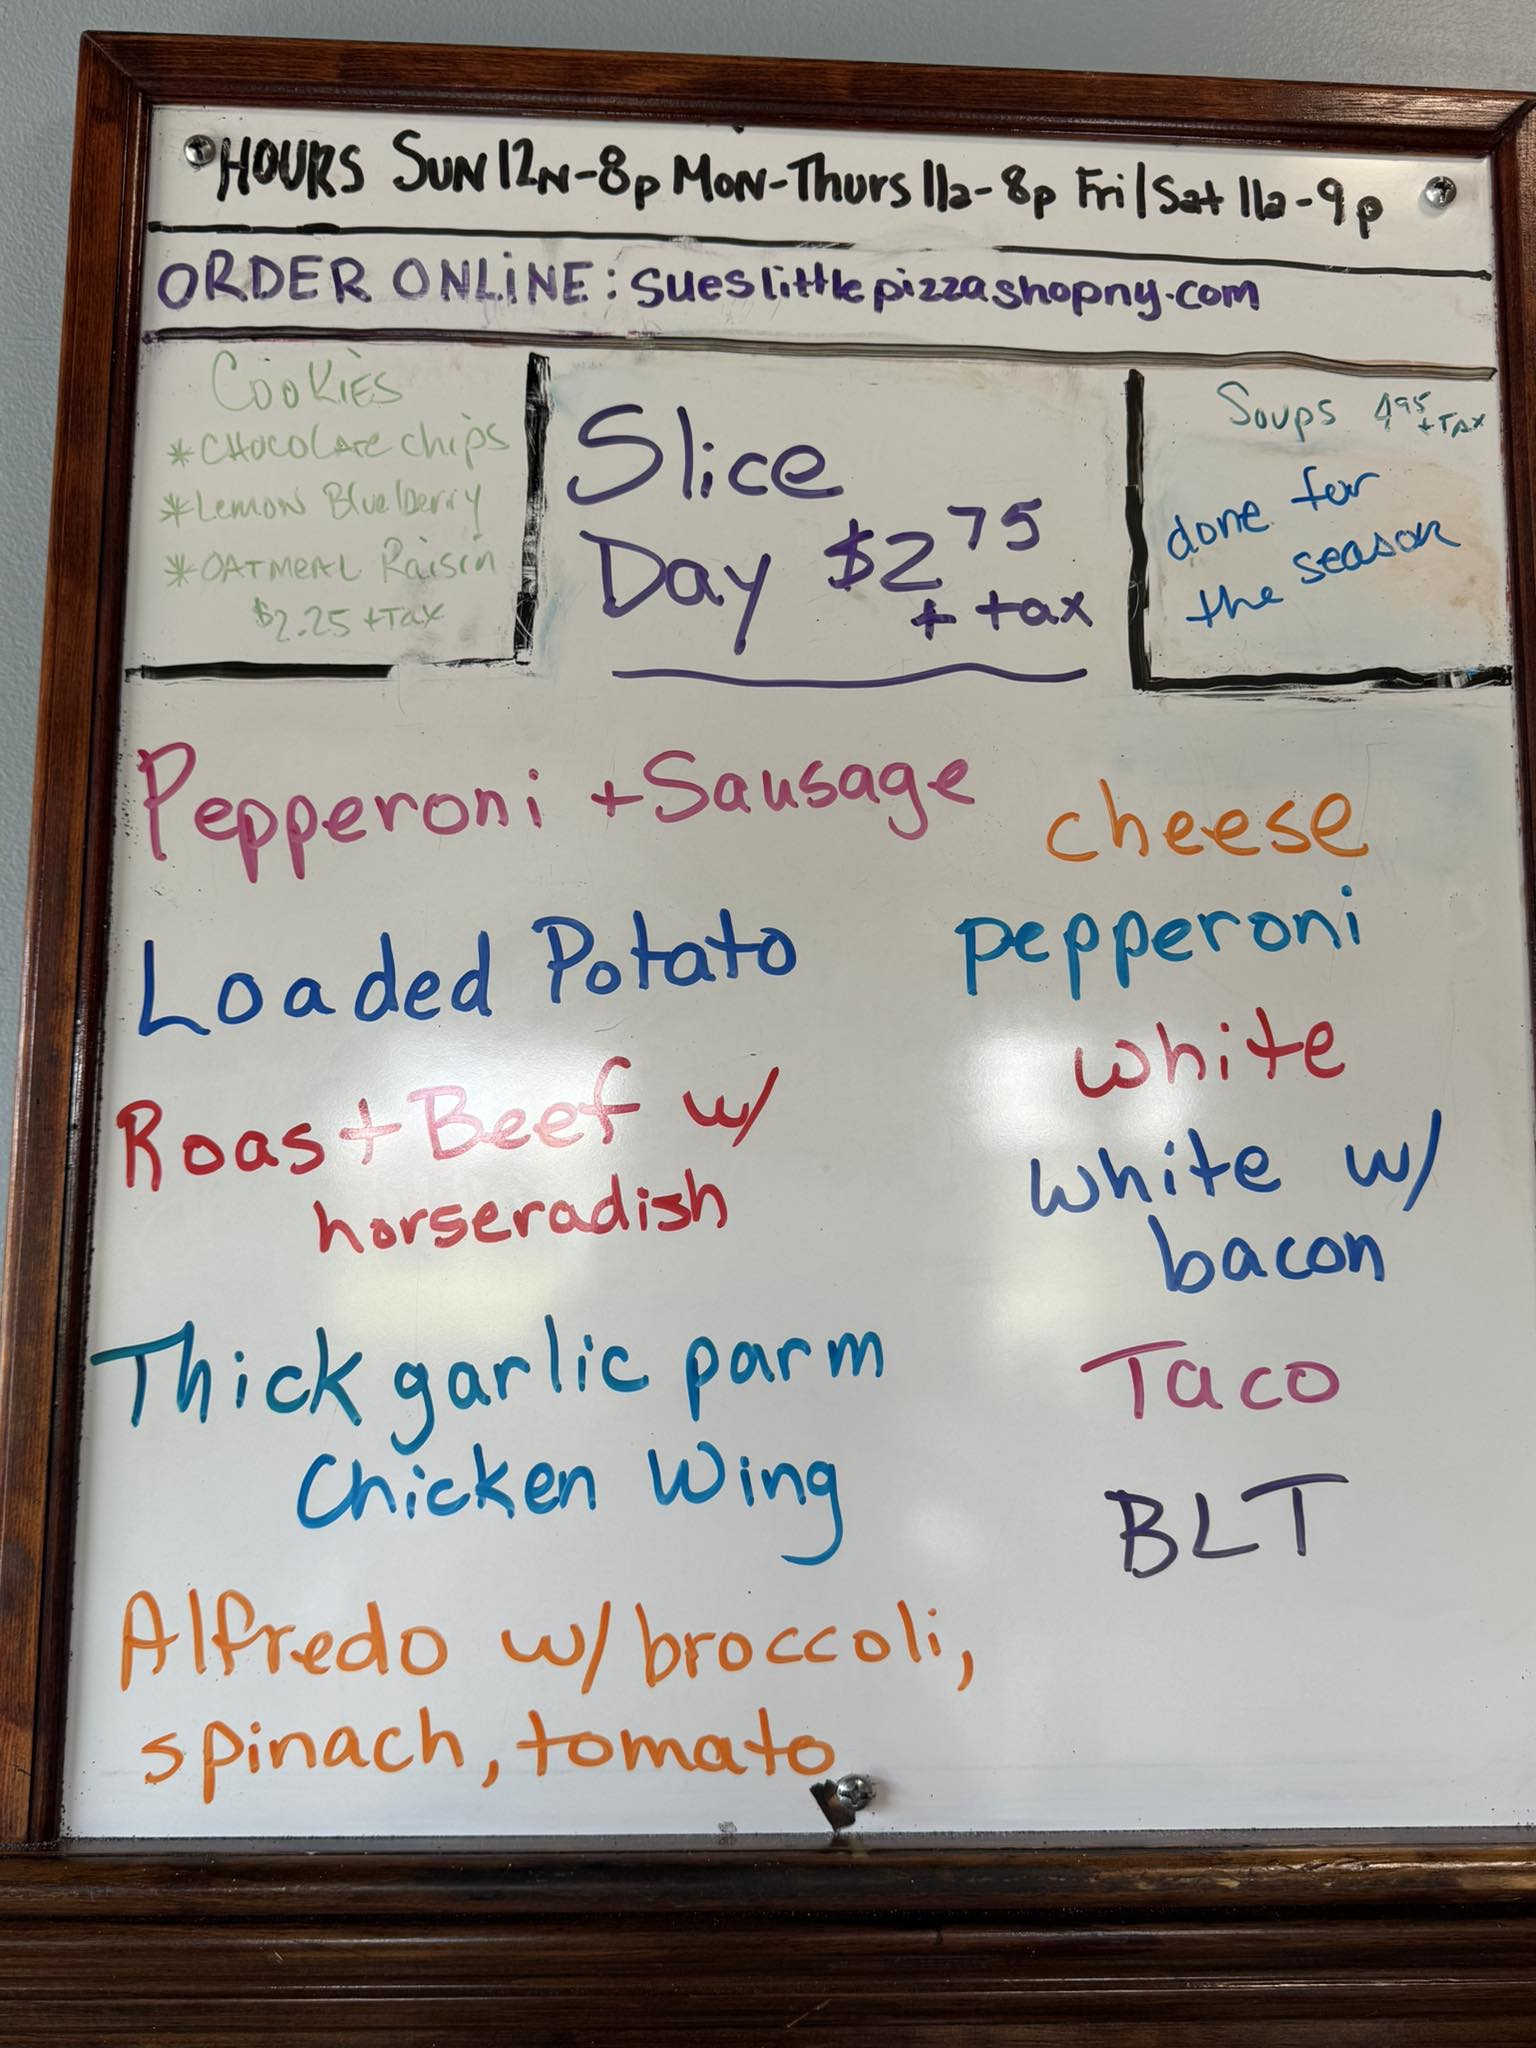 HOURS SUN 12N-8p MON-Thurs 11a-8p Fri/Sat 11a-9p
ORDER ONLINE: sueslittlepizzashopny.com
COOKIES
*CHOCOLATE chips
*LEMON Blueberry
*OATMEAL Raisin
$2.25 + Tax
Slice
Day $2 75
+ tax
Soups 4 95
+ TAX
done for
the season
Pepperoni + Sausage
Loaded Potato
Roast Beef w/
horseradish
Thick garlic parm
Chicken Wing
Alfredo w/ broccoli,
spinach, tomato
cheese
pepperoni
white
white w/
bacon
Taco
BLT